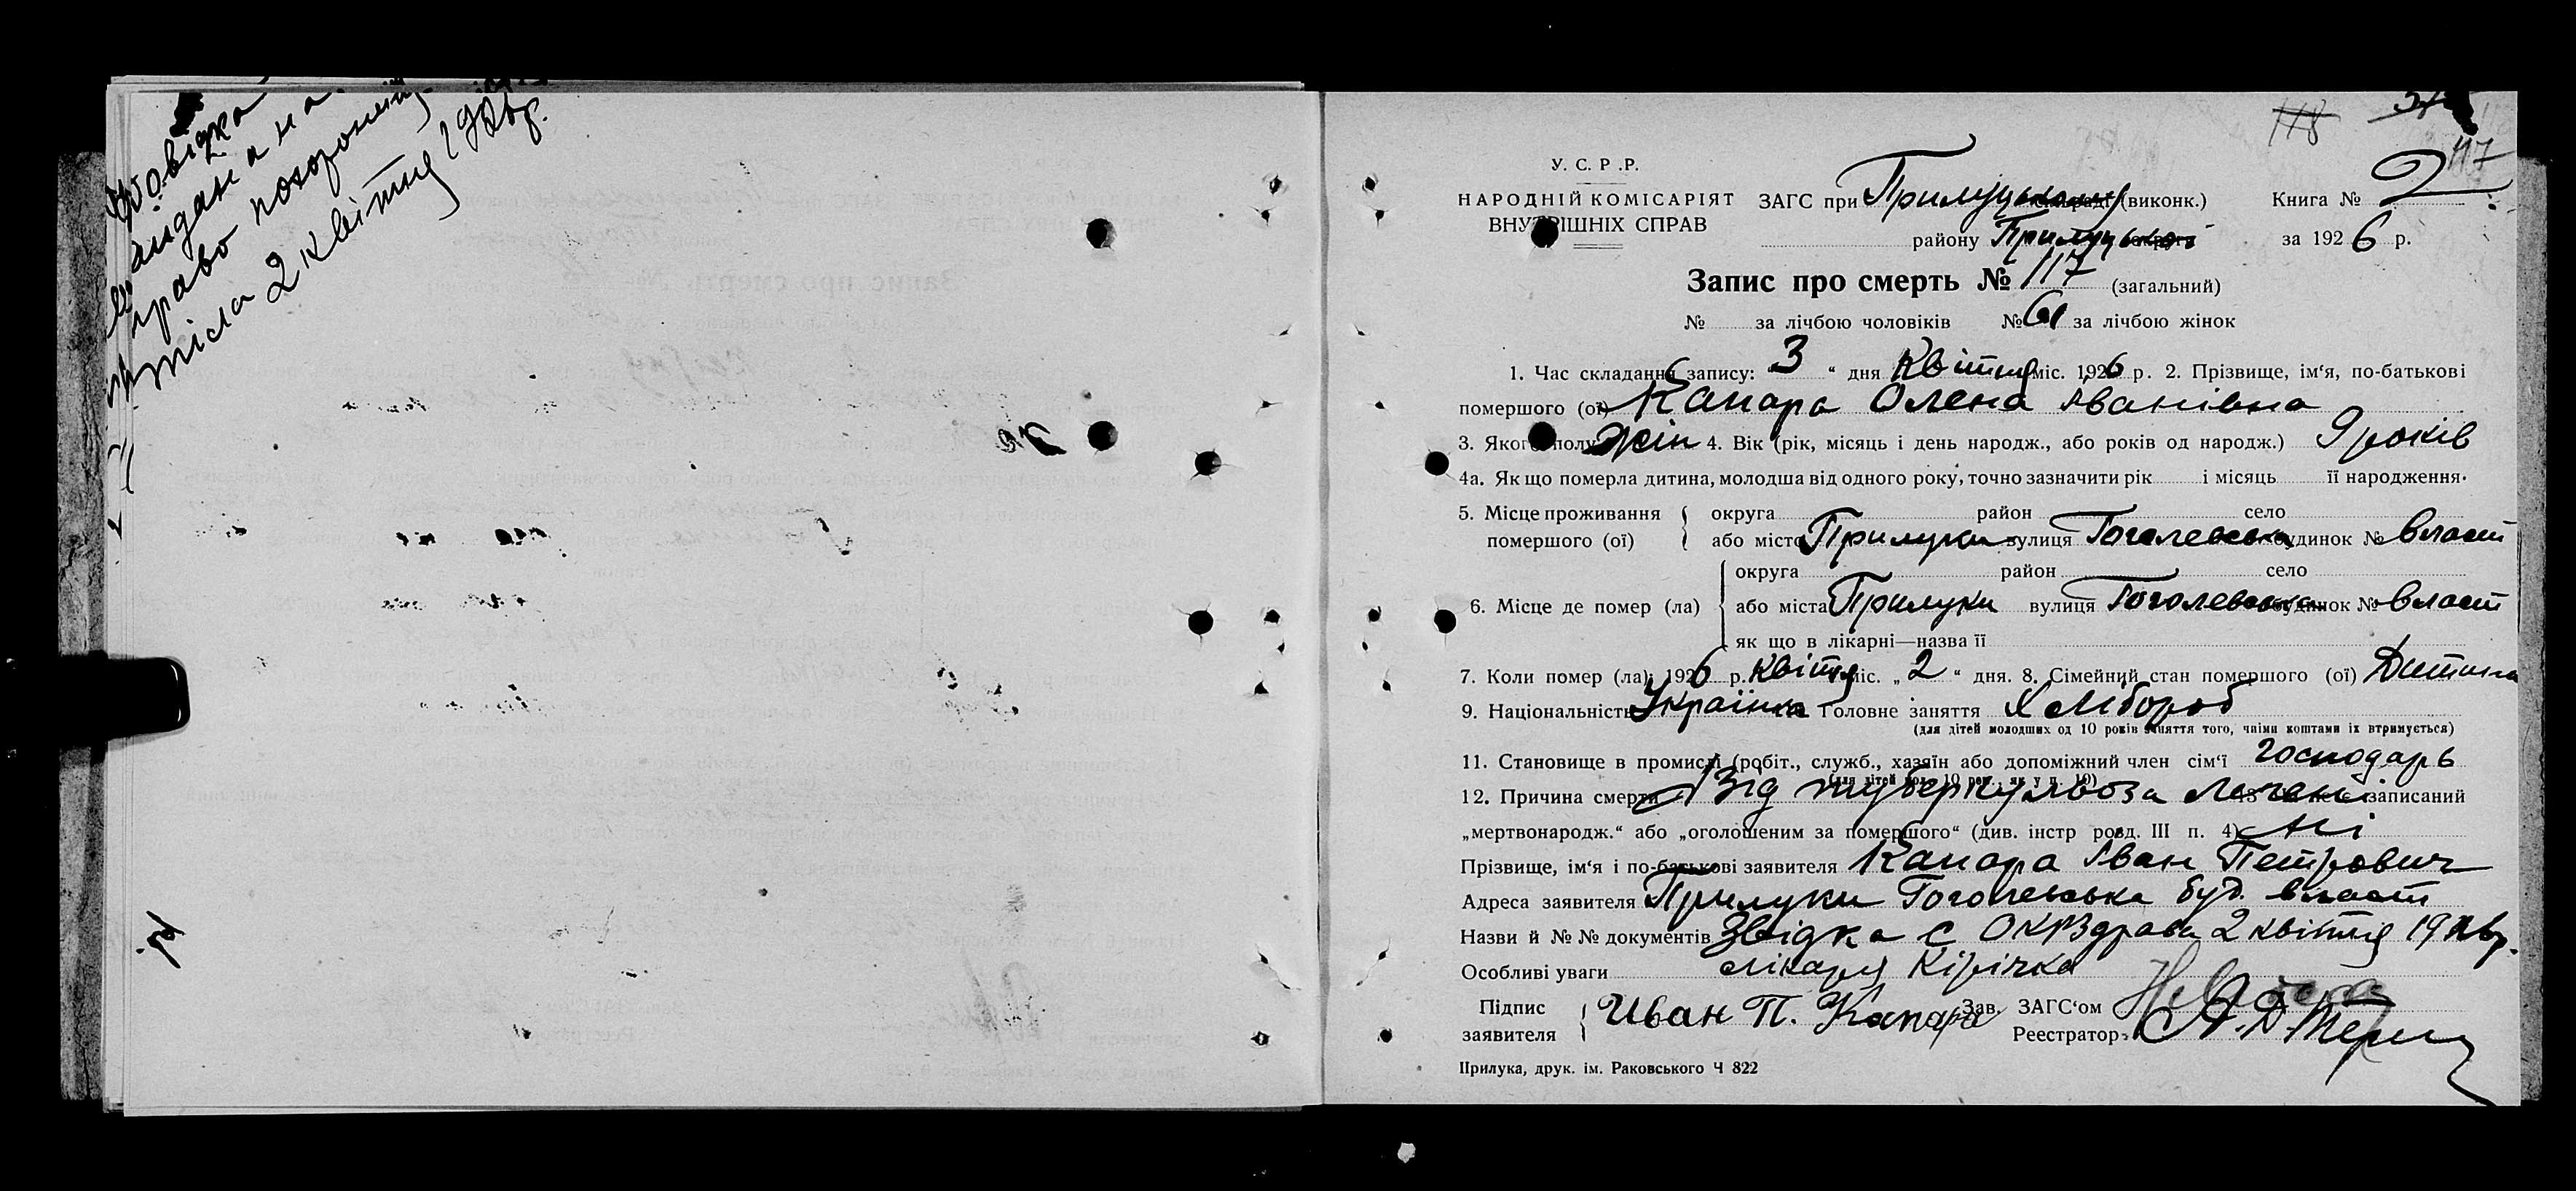 Довідка
видана на
право похорон
після 2 квітня 1926 р.
118
117
У. С. Р. Р.
НАРОДНІЙ КОМІСАРІЯТ
ВНУТРІШНІХ СПРАВ
ЗАГС при Прилуцькому (виконк.) Книга № 2
району Прилуцької за 1926 р.
Запис про смерть № 117 (загальний)
№ за лічбою чоловіків № 61 за лічбою жінок
1. Час складання запису: 3 “ дня Квітня міс. 1926 р. 2. Прізвище, ім‘я, по-батькові
помершого (ої) Капара Олена Іванівна
3. Якого полу жін 4. Вік (рік, місяць і день народж., або років од народж.) 9 років
4а. Як що померла дитина, молодша від одного року, точно зазначити рік і місяць її народження.
5. Місце проживання помершого (ої) { округа район село
або місто Прилуки вулиця Гоголевська будинок № власт
6. Місце де помер (ла) { округа район село
або міста Прилуки вулиця Гоголевська будинок № власт
як що в лікарні—назва її
7. Коли помер (ла) 1926 р. квітня міс. „ 2 “ дня. 8. Сімейний стан помершого (ої) Дитина
9. Національність Українка Головне заняття Хлібороб
(для дітей молодших од 10 років заняття того, чиїми коштами їх втримується)
11. Становище в промислі (робіт., служб., хазяїн або допоміжний член сім‘ї господарь
(для дітей мол. 10 рок., як у п. 10)
12. Причина смерти Від туберкульоза легені 13 записаний
„мертвонародж.“ або „оголошеним за помершого“ (див. інстр розд. III п. 4) ні
Прізвище, ім‘я і по-батькові заявителя Капара Іван Петрович
Адреса заявителя Прилуки Гоголевська буд. власт
Назви й №№ документів Звідка с Окрздрава 2 квітня 1926 р.
Особливі уваги лікаря Кірічка
Підпис заявителя { Иван П. Капара Зав. ЗАГС‘ом
Реестратор
Прилука, друк. ім. Раковського Ч 822